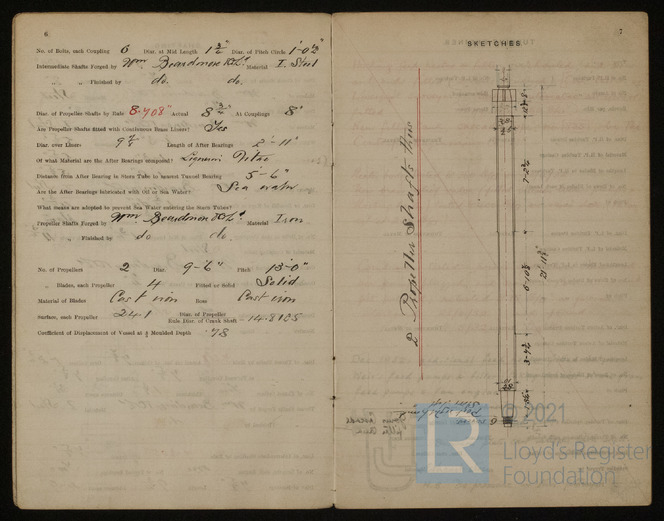 6
No. of Bolts, each Coupling 6 Diar. at Mid Length 1 3/4" Diar. of Pitch Circle 1'-0 1/2"
Intermediate Shafts Forged by Wm Beardmore & Co Ld Material I. Steel
" " Finished by do. do.
Diar. of Propeller Shafts by Rule 8.708" Actual 8 3/4" At Couplings 8"
Are Propeller Shafts fitted with Continuous Brass Liners? Yes
Diar. over Liners 9 7/8 Length of After Bearings 2'-11"
Of what Material are the After Bearings composed? Lignum Vitae
Distance from After Bearing in Stern Tube to nearest Tunnel Bearing 5'-6"
Are the After Bearings lubricated with Oil or Sea Water? Sea water
What means are adopted to prevent Sea Water entering the Stern Tubes?
Propeller Shafts Forged by Wm Beardmore & Co Ld Material Iron
" Finished by do do.
No. of Propellers 2 Diar. 9-6" Pitch 13'-0"
" Blades, each Propeller 4 Fitted or Solid Solid
Material of Blades Cast iron Boss Cast iron
Surface, each Propeller 24.1 Diar. of Propeller
Rule Diar. of Crank Shaft 14.8105
Coefficient of Displacement of Vessel at 3/4 Moulded Depth .78
7
SKETCHES
2 Propeller Shafts thus
© 2021
LR
Lloyd's Register
Foundation